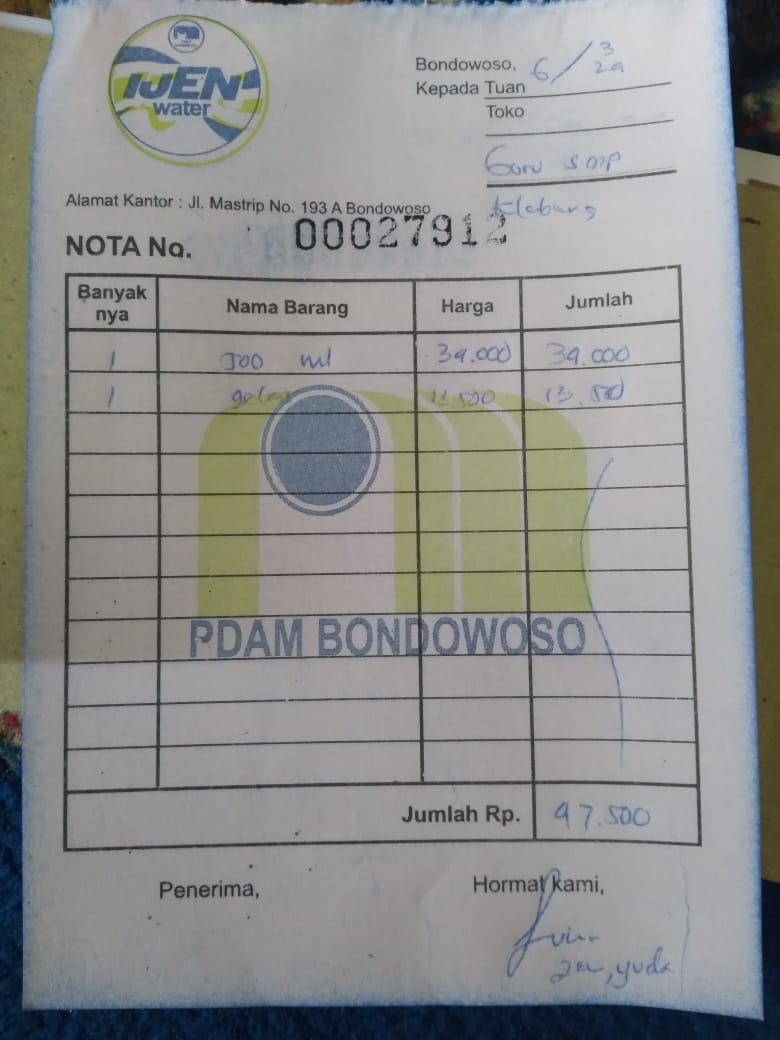 IJEN
water
Bondowoso, 6/3 24
Kepada Tuan
Toko
Guru SMP
Klabang
Alamat Kantor : Jl. Mastrip No. 193 A Bondowoso
NOTA No. 00027912
Banyak nya Nama Barang Harga Jumlah
1 500 ml 34.000 34.000
1 galon 13.500 13.500
PDAM BONDOWOSO
Jumlah Rp. 47.500
Penerima, Hormat kami,
yuda